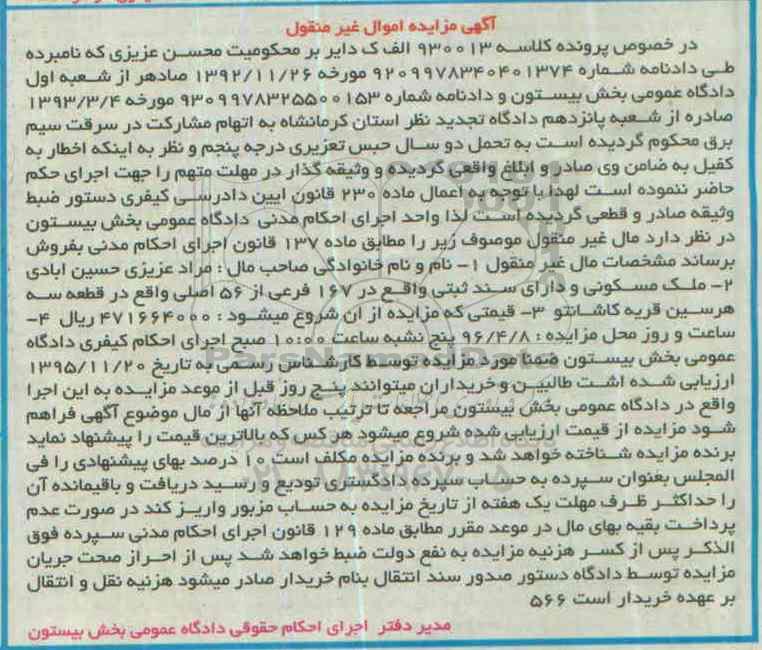 آگهی مزایده اموال غیر منقول
در خصوص پرونده کلاسه ۹۳۰۰۱۳ الف ک دایر بر محکومیت محسن عزیزی که نامبرده
طی دادنامه شماره ۹۲۰۹۹۷۸۳۴۰۴۰۱۳۷۴ مورخه ۱۳۹۲/۱۱/۲۶ صادهر از شعبه اول
دادگاه عمومی بخش بیستون و دادنامه شماره ۹۳۰۹۹۷۸۳۲۵۵۰۰۱۵۳ مورخه ۱۳۹۳/۳/۴
صادره از شعبه پانزدهم دادگاه تجدید نظر استان کرمانشاه به اتهام مشارکت در سرقت سیم
برق محکوم گردیده است به تحمل دو سال حبس تعزیری درجه پنجم و نظر به اینکه اخطار به
کفیل به ضامن وی صادر و ابلاغ واقعی گردیده و وثیقه گذار در مهلت متهم را جهت اجرای حکم
حاضر ننموده است لهدا با توجه به اعمال ماده ۲۳۰ قانون ایین دادرسی کیفری دستور ضبط
وثیقه صادر و قطعی گردیده است لذا واحد اجرای احکام مدنی دادگاه عمومی بخش بیستون
در نظر دارد مال غیر منقول موصوف زیر را مطابق ماده ۱۳۷ قانون اجرای احکام مدنی بفروش
برساند مشخصات مال غیر منقول ۱- نام و نام خانوادگی صاحب مال : مراد عزیزی حسین ابادی
۲- ملک مسکونی و دارای سند ثبتی واقع در ۱۶۷ فرعی از ۵۶ اصلی واقع در قطعه سه
هرسین قریه کاشانتو ۳- قیمتی که مزایده از ان شروع میشود : ۴۷۱۶۶۴۰۰۰ ریال ۴-
ساعت و روز محل مزایده : ۹۶/۴/۸ پنج نشبه ساعت ۱۰:۰۰ صبح اجرای احکام کیفری دادگاه
عمومی بخش بیستون ضمنا مورد مزایده توسط کارشناس رسمی به تاریخ ۱۳۹۵/۱۱/۲۰
ارزیابی شده اشت طالبین و خریداران میتوانند پنج روز قبل از موعد مزایده به این اجرا
واقع در دادگاه عمومی بخش بیستون مراجعه تا ترتیب ملاحظه آنها از مال موضوع آگهی فراهم
شود مزایده از قیمت ارزیابی شده شروع میشود هر کس که بالاترین قیمت را پیشنهاد نماید
برنده مزایده شناخته خواهد شد و برنده مزایده مکلف است ۱۰ درصد بهای پیشنهادی را فی
المجلس بعنوان سپرده به حساب سپرده دادگستری تودیع و رسید دریافت و باقیمانده آن
را حداکثر ظرف مهلت یک هفته از تاریخ مزایده به حساب مزبور واریز کند در صورت عدم
پرداخت بقیه بهای مال در موعد مقرر مطابق ماده ۱۲۹ قانون اجرای احکام مدنی سپرده فوق
الذکر پس از کسر هزنیه مزایده به نفع دولت ضبط خواهد شد پس از احراز صحت جریان
مزایده توسط دادگاه دستور صدور سند انتقال بنام خریدار صادر میشود هزنیه نقل و انتقال
بر عهده خریدار است ۵۶۶
مدیر دفتر اجرای احکام حقوقی دادگاه عمومی بخش بیستون